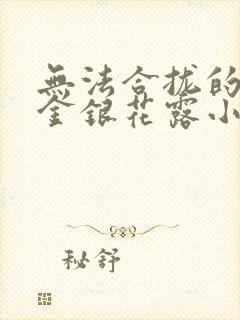 無法合拢的
金銀花露小
秘舒